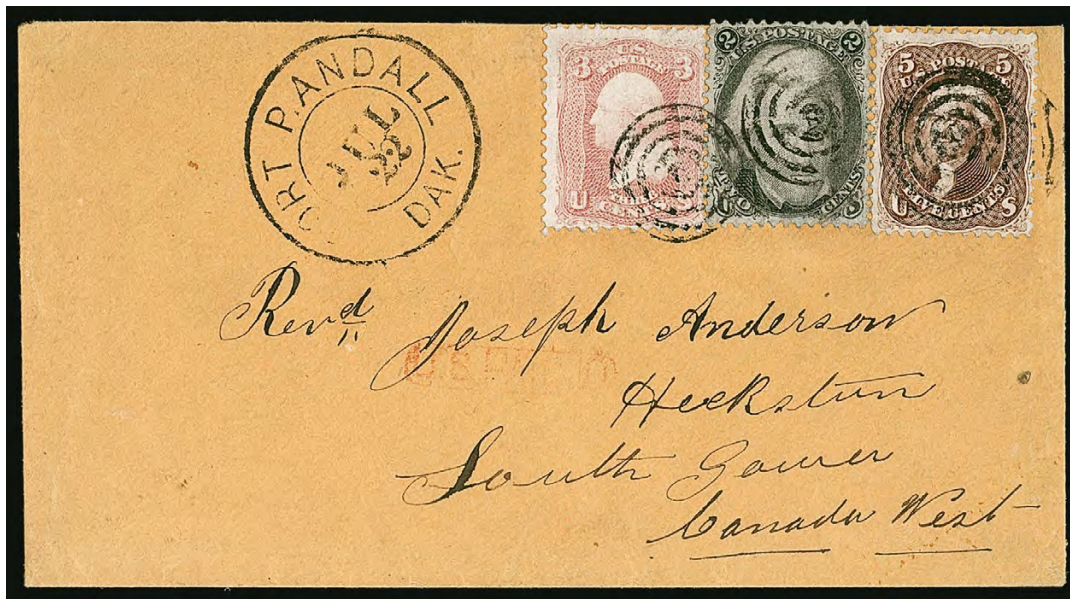 FORT RANDALL
DAK.
JUL
22
3 U.S. POSTAGE 3
U THREE CENTS S
2 U.S. POSTAGE 2
U TWO CENTS S
5 U.S. POSTAGE 5
U FIVE CENTS S
Revd Joseph Anderson
Heckston
South Gower
Canada West